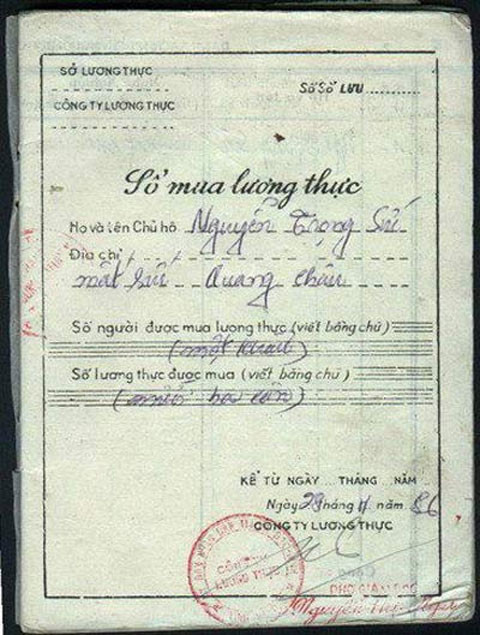 SỞ LƯƠNG THỰC
Số Sổ LƯU
CÔNG TY LƯƠNG THỰC
Sổ mua lương thực
Họ và tên Chủ hộ Nguyễn Trọng Sứ
Địa chỉ
mắt sứ Quang châu
Số người được mua lương thực (viết bằng chữ)
(một khẩu)
Số lương thực được mua (viết bằng chữ)
(mười ba cân)
KỂ TỪ NGÀY ... THÁNG ... NĂM ...
Ngày 29 tháng 11 năm 86
CÔNG TY LƯƠNG THỰC
PHÓ GIÁM ĐỐC
Nguyễn